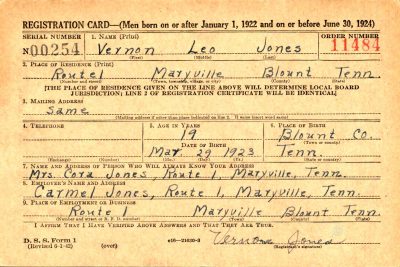 REGISTRATION CARD—(Men born on or after January 1, 1922 and on or before June 30, 1924)
SERIAL NUMBER 1. NAME (Print) ORDER NUMBER
N00254 Vernon Leo Jones 11484
(First) (Middle) (Last)
2. PLACE OF RESIDENCE (Print)
Route 1 Maryville Blount Tenn.
(Number and street) (Town, township, village, or city) (County) (State)
[THE PLACE OF RESIDENCE GIVEN ON THE LINE ABOVE WILL DETERMINE LOCAL BOARD
JURISDICTION; LINE 2 OF REGISTRATION CERTIFICATE WILL BE IDENTICAL]
3. MAILING ADDRESS
Same
(Mailing address if other than place indicated on line 2. If same insert word same)
4. TELEPHONE 5. AGE IN YEARS 6. PLACE OF BIRTH
19 Blount Co.
DATE OF BIRTH (Town or county)
Mar. 29 1923 Tenn.
(Exchange) (Number) (Mo.) (Day) (Yr.) (State or country)
7. NAME AND ADDRESS OF PERSON WHO WILL ALWAYS KNOW YOUR ADDRESS
Mrs. Cora Jones, Route 1, Maryville, Tenn.
8. EMPLOYER'S NAME AND ADDRESS
Carmel Jones, Route 1, Maryville, Tenn.
9. PLACE OF EMPLOYMENT OR BUSINESS
Route 1 Maryville Blount Tenn.
(Number and street or R. F. D. number) (Town) (County) (State)
I AFFIRM THAT I HAVE VERIFIED ABOVE ANSWERS AND THAT THEY ARE TRUE.
D. S. S. Form 1
(Revised 6-1-42) (over) Jones